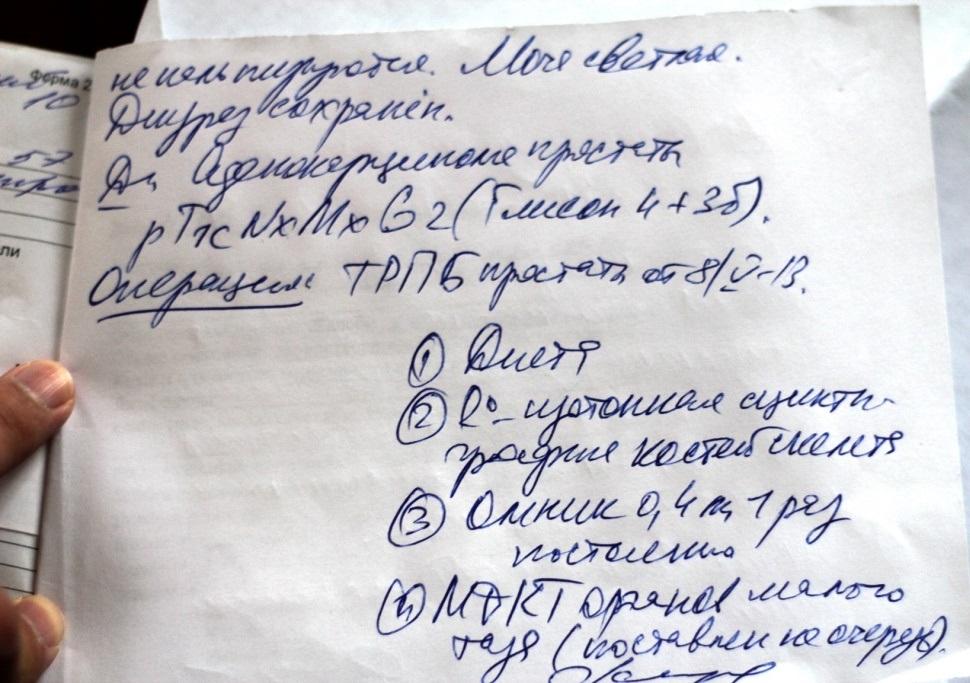 не пальпируются. Моча светлая.
Диурез сохранён.
Ds Аденокарцинома простаты
pT1cNxMxG2 (Глисон 4+3б).
Операция: ТРПБ простаты от 8/V-13.
① Диета
② Ro-изотопная сцинти-
графия костей скелета
③ Омник 0,4 1 раз
постоянно
④ МРКТ органов малого
таза (поставлен на очередь).
Форма 2
10
57
ли